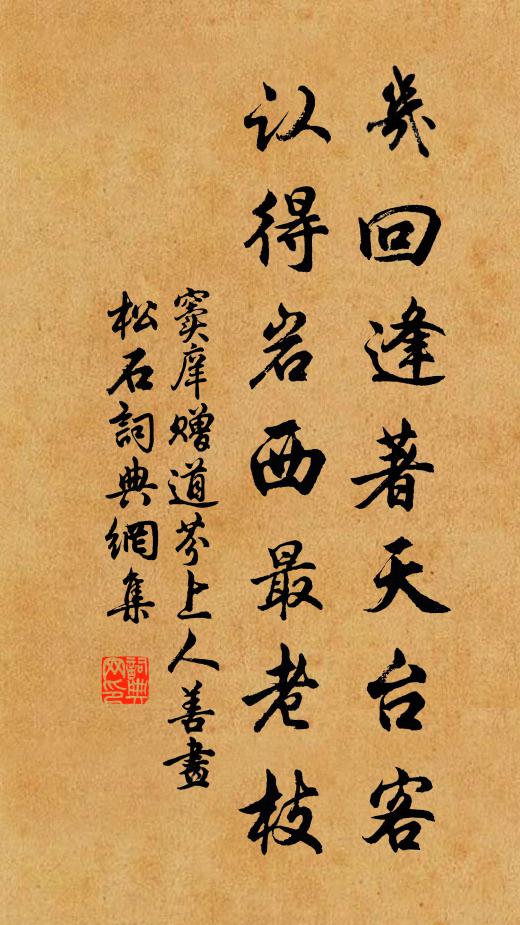 幾回逢著天台客
认得岩西最老枝
窦庠赠道芬上人善畫
松石詞典網集
詞典网印